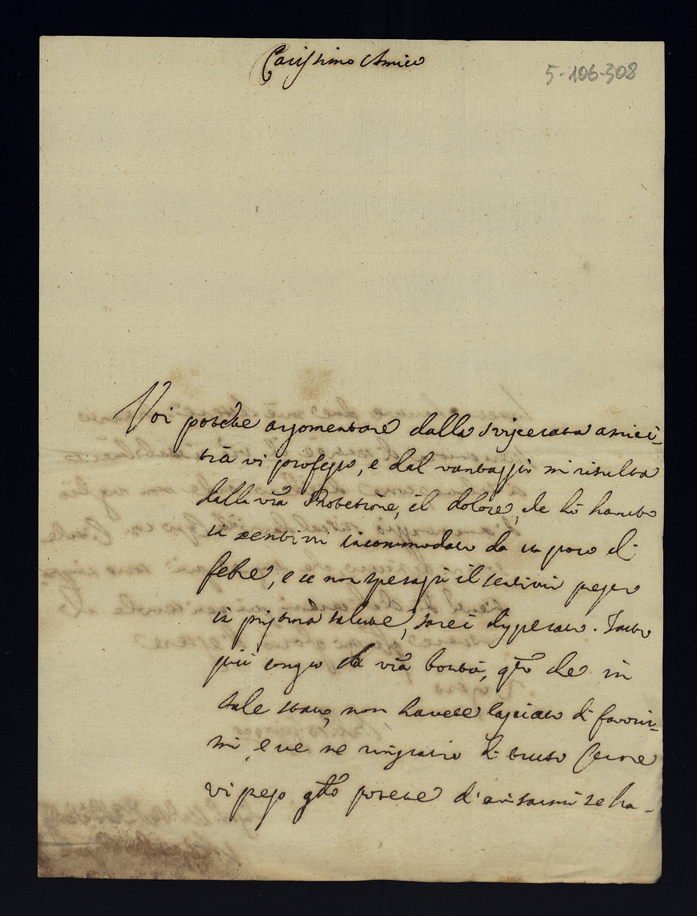 Carissimo Amico
5-106-308
Voi potete argomentare dalla svicerata amici-
tia vi professo, e dal vantaggio mi risulta
dalla vra Protetione, il dolore, che hò havuto
in sentirvi incommodato da un poco di
febre, e se non sperassi il sentirvi presto
in pristina salute, sarei disperato. Tanto
più congo la vra bontà, qto che in
tale stato, non havete lasciato di favorir-
mi, e ve ne ringratio di tutto Cuore
vi prego qto potete d'avisarmi se ha-